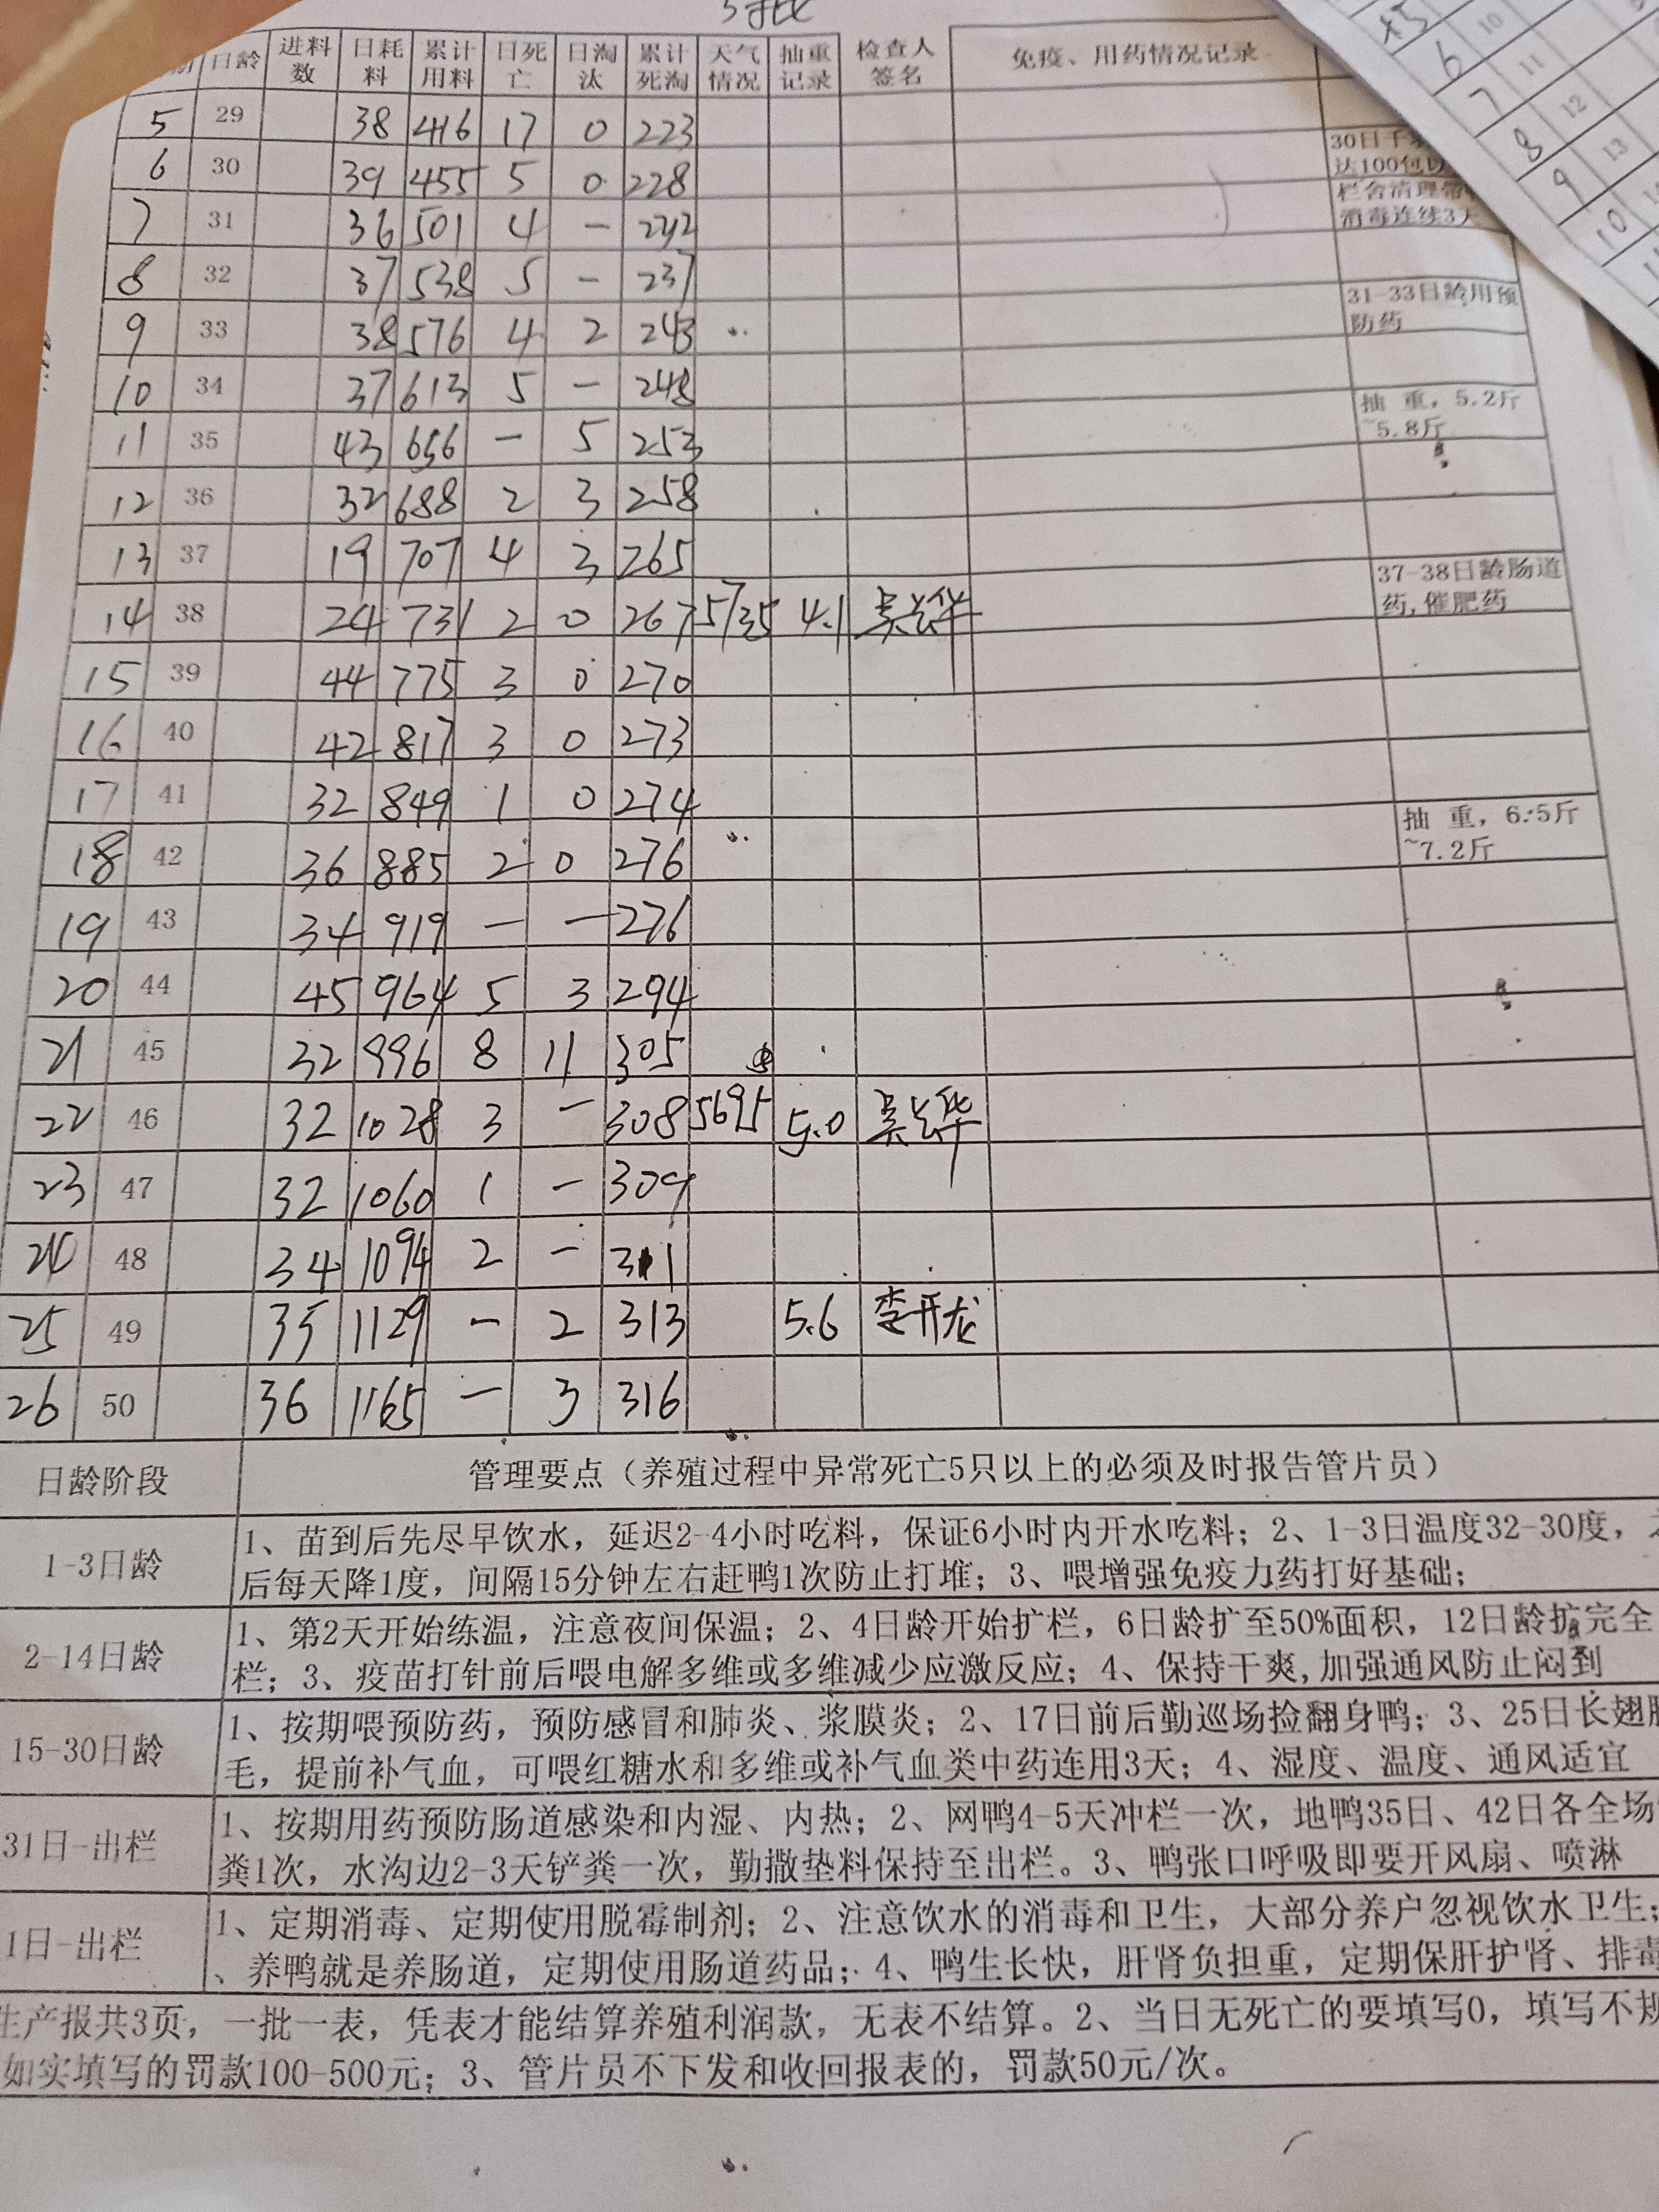 日龄 进料数 日耗料 累计用料 日死亡 日淘汰 累计死淘 天气情况 抽重记录 检查人签名 免疫、用药情况记录
5 29 38 416 17 0 223
6 30 39 455 5 0 228
30日
达100包
栏舍清理
消毒连续3天
7 31 36 501 4 - 232
8 32 37 538 5 - 237
31-33日龄用预
防药
9 33 38 576 4 2 243
10 34 37 613 5 - 248
抽 重，5.2斤
~5.8斤
11 35 43 656 - 5 253
12 36 32 688 2 3 258
13 37 19 707 4 3 265
37-38日龄肠道
药,催肥药
14 38 24 731 2 0 267 5735 4.1
15 39 44 775 3 0 270
16 40 42 817 3 0 273
17 41 32 849 1 0 274
抽 重，6.5斤
~7.2斤
18 42 36 885 2 0 276
19 43 34 919 - - 276
20 44 45 964 5 3 294
21 45 32 996 8 11 305
22 46 32 1028 3 - 308 5695 5.0
23 47 32 1060 1 - 309
24 48 34 1094 2 - 311
25 49 35 1129 - 2 313 5.6 李开龙
26 50 36 1165 - 3 316
日龄阶段 管理要点（养殖过程中异常死亡5只以上的必须及时报告管片员）
1-3日龄
1、苗到后先尽早饮水，延迟2-4小时吃料，保证6小时内开水吃料；2、1-3日温度32-30度，
后每天降1度，间隔15分钟左右赶鸭1次防止打堆；3、喂增强免疫力药打好基础；
2-14日龄
1、第2天开始练温，注意夜间保温；2、4日龄开始扩栏，6日龄扩至50%面积，12日龄扩完全
栏；3、疫苗打针前后喂电解多维或多维减少应激反应；4、保持干爽,加强通风防止闷到
15-30日龄
1、按期喂预防药，预防感冒和肺炎、浆膜炎；2、17日前后勤巡场捡翻身鸭；3、25日长翅
毛，提前补气血，可喂红糖水和多维或补气血类中药连用3天；4、湿度、温度、通风适宜
31日-出栏
1、按期用药预防肠道感染和内湿、内热；2、网鸭4-5天冲栏一次，地鸭35日、42日各全场
粪1次，水沟边2-3天铲粪一次，勤撒垫料保持至出栏。3、鸭张口呼吸即要开风扇、喷淋
1日-出栏
1、定期消毒、定期使用脱霉制剂；2、注意饮水的消毒和卫生，大部分养户忽视饮水卫生；
、养鸭就是养肠道，定期使用肠道药品；4、鸭生长快，肝肾负担重，定期保肝护肾、排毒
生产报共3页，一批一表，凭表才能结算养殖利润款，无表不结算。2、当日无死亡的要填写0，填写不规
如实填写的罚款100-500元；3、管片员不下发和收回报表的，罚款50元/次。
45
6 10
7 11
8 12
9 13
10